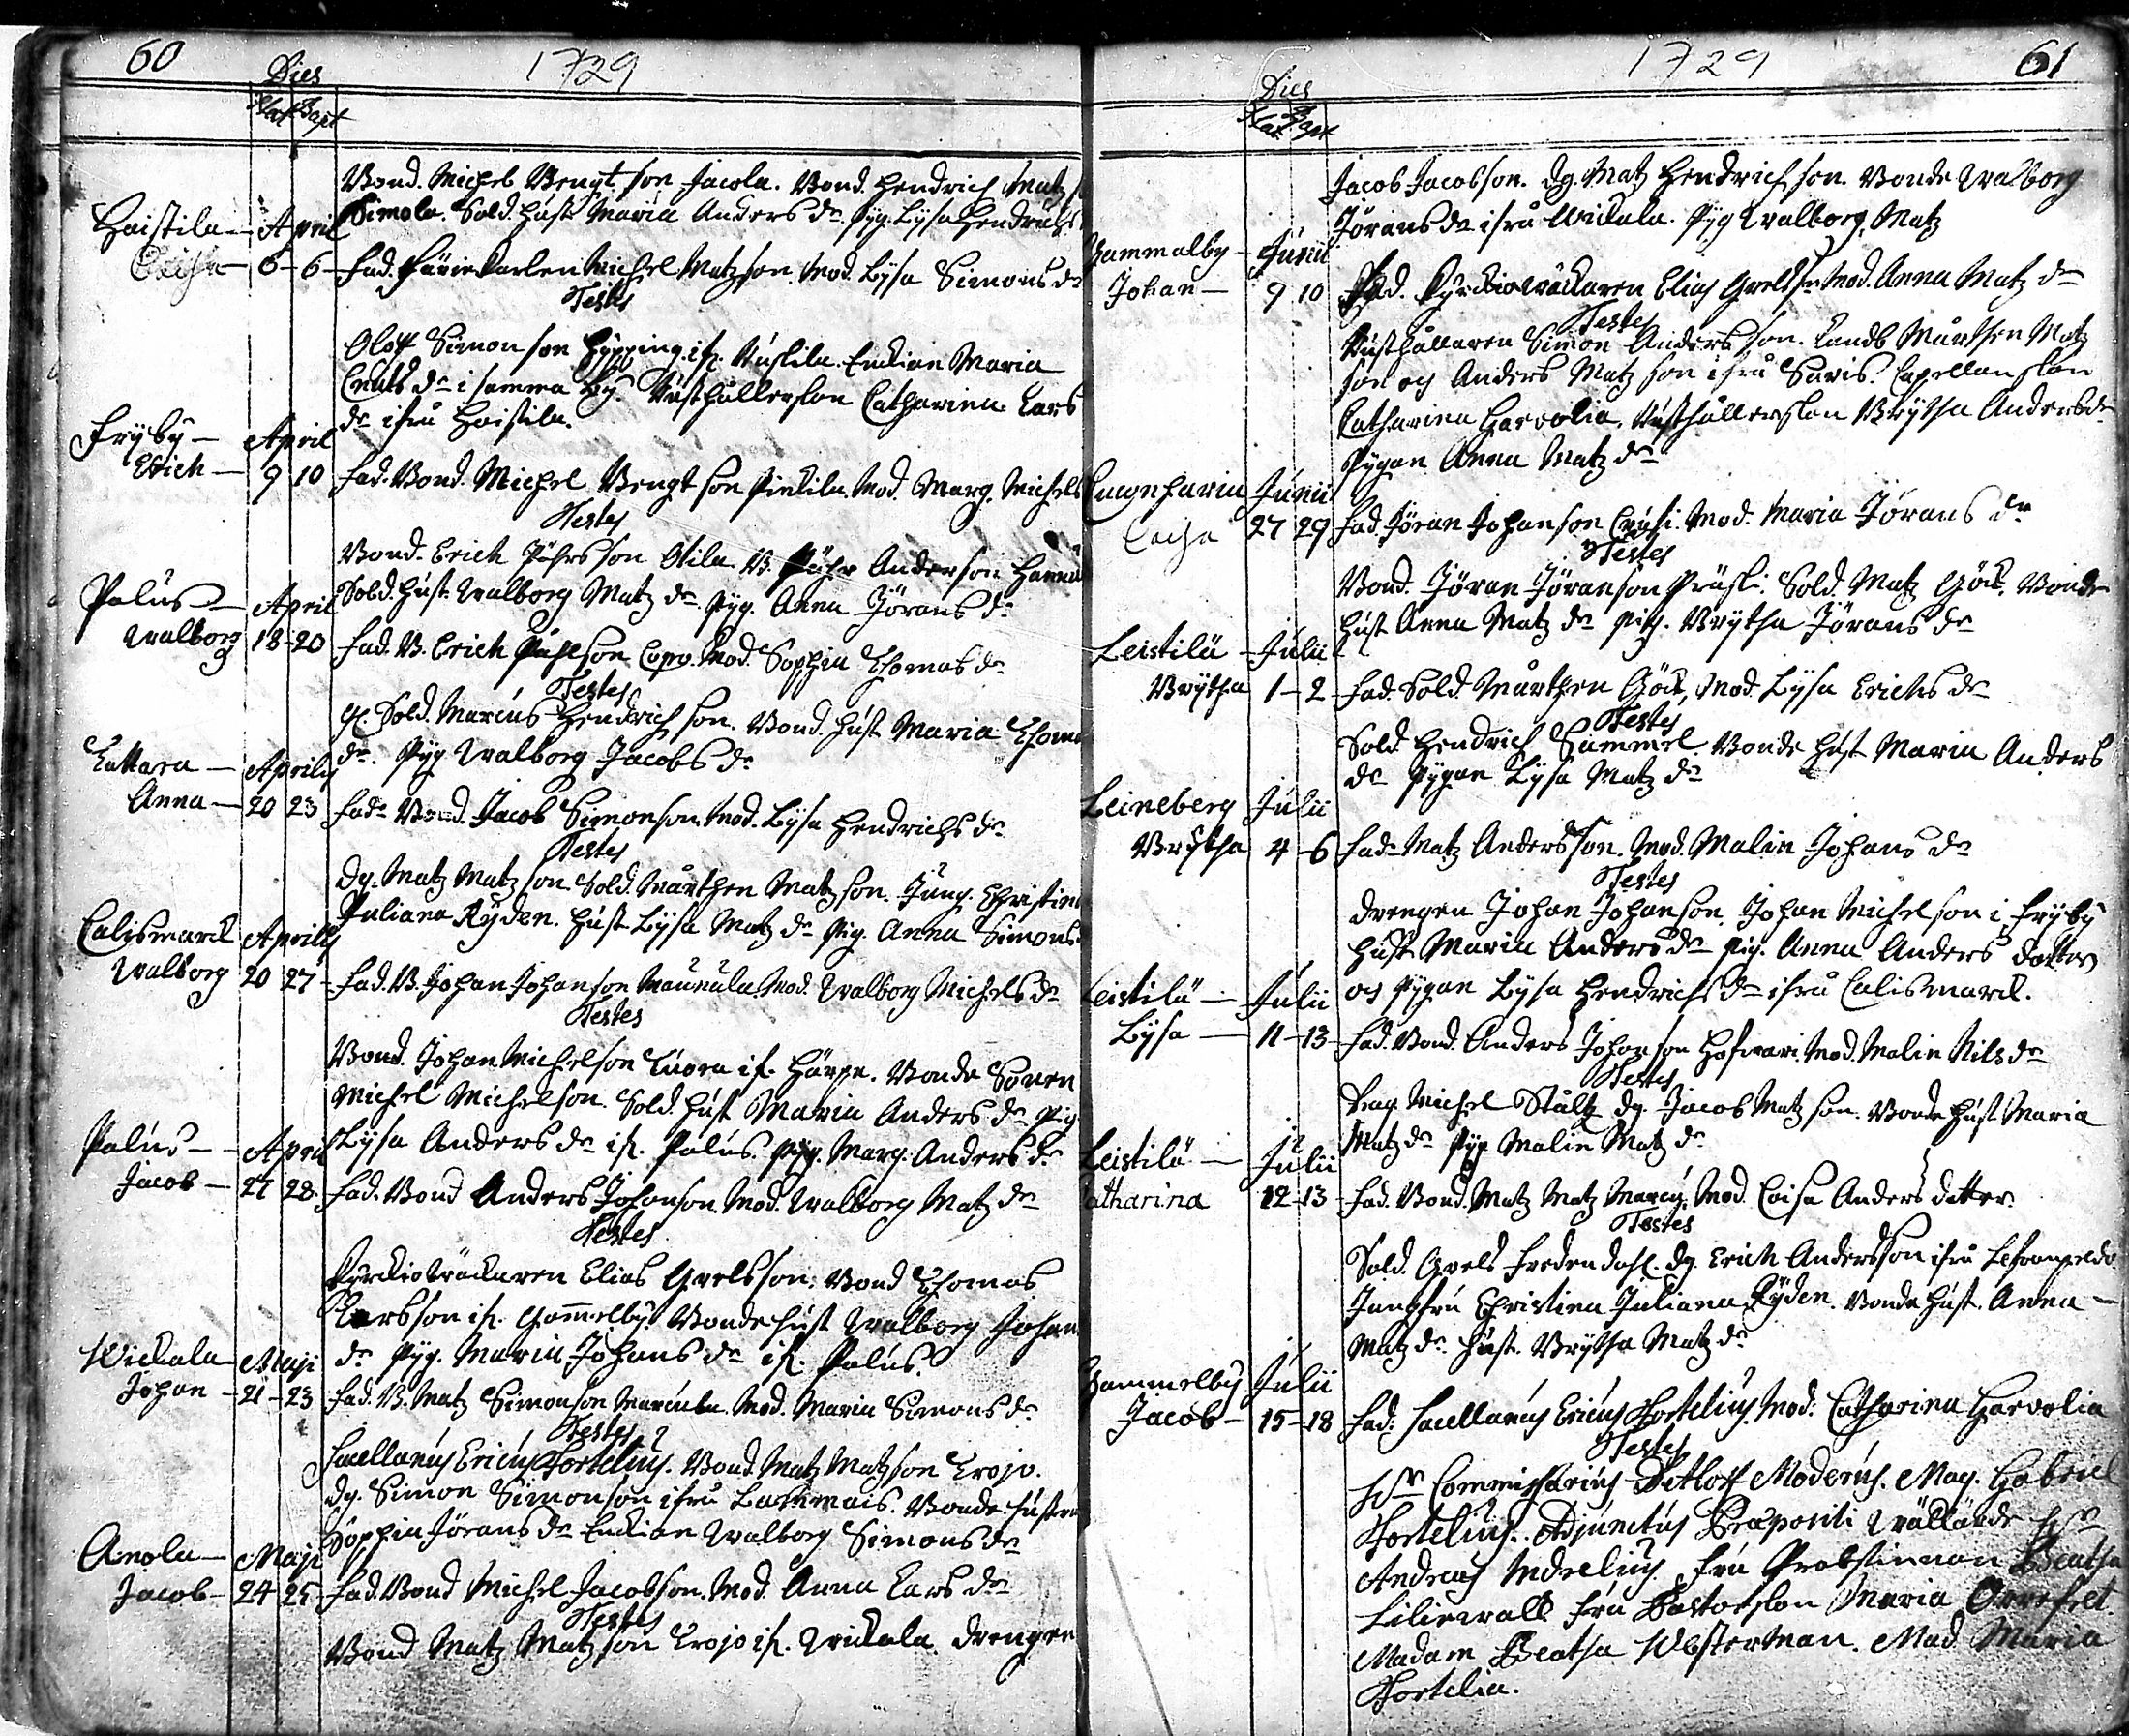 60
1729
Dies
Nat Bapt
Bond. Michel Bengt son Jacola. Bond. Hendrich Matz
Simola. Sold. Hust. Maria Anders dr. Pyg. Lysa Hendrichs
Haistila — April
6 - 6 - Fad. Michel Matzson. Mod. Lysa Simons dr
Testes
Oloff Simonson Hypping if. Enckian Maria
dr i samma by. Rusthållerskan Catharina Lars
dr ifrå Haistila.
Fryby — April
Erich — 9 10 Fad. Bond. Michel Bengtson Pietila. Mod. Marg. Michels
Testes
Bond. Erich son Otila. B. Anderson
Sold. Hust. Walborg Matz dr Pyg. Anna Jörans dr
Palus — April
Walborg 18-20 Fad. B. Erich Påhlson. Mod. Sophia Thomas dr
Testes
Gl. Sold. Marcus Hendrichson. Bond. Hust. Maria Thomas
dr. Pyg. Walborg Jacobs dr
Kattara — Aprilis
Anna — 20 23 Fad. Bond. Jacob Simonson. Mod. Lysa Hendrichs dr
Testes
Dg. Matz Matzson. Sold. Mårthen Matzson. Jung. Christina
Juliana Ryden. Hust. Lysa Matz dr Pig. Anna Simons
Calismarck Aprilis
Walborg 20 27 - Fad. B. Johan Johanson Maunula. Mod. Walborg Michels dr
Testes
Bond. Johan Michelson if. Härpe. Bonde Sonen
Michel Michelson. Sold. Hust. Maria Anders dr Pig
Lysa Anders dr if. Palus. Pyg. Marg. Anders dr
Palus — April
Jacob — 27 28. Fad. Bond Anders Johanson. Mod. Walborg Matz dr
Testes
Kyrckiowäckaren Elias Grelsson. Bond Thomas
Larsson if. Gammelby. Bonde Hust. Walborg Johans
dr Pyg. Maria Johans dr if. Palus.
Wickala — Maji
Johan — 21-23 Fad. B. Matz Simonson. Mod. Maria Simons dr
Testes
Sacellanus Ericus Hortelius. Bond. Matz Matzson Krojo.
Dg. Simon Simonson ifrå Lammais. Bonde Hustru
Sophia Jörans dr Enckian Walborg Simons dr
Anola — Maji
Jacob — 24 25 - Fad. Bond Michel Jacobson. Mod. Anna Lars dr
Testes
Bond Matz Matzson Krojo if. Wickala. Drengen
1729
61
Dies
Nat Bapt
Jacob Jacobson. Dg. Matz Hendrichson. Bonde Walborg
Jörans dr ifrå Wickala. Pyg Walborg, Matz
Gammalby — Junii
Johan — 9 10 Fad. Kyrckiowäckaren Elias Grelsson. Mod. Anna Matz dr
Testes
Rusthållaren Simon Andersson. Landb. Mårthen Matz
son och Anders Matzson ifrå Saris. Capellanskan
Catharina Harvolia, Rusthållerskan Brytha Anders dr
Pygan Anna Matz dr
Junii
27 29 Fad. Jöran Johanson. Mod. Maria Jörans dr
Testes
Bond. Jöran Jöranson Prusi. Sold. Matz Göök. Bonde
Hust Anna Matz dr Pig. Brytha Jörans dr
Leistilä — Julii
Brytha 1-2 - Fad. Sold. Mårthen Göök, Mod. Lysa Erichs dr
Testes
Sold. Hendrich Sammel. Bonde Hust Maria Anders
dr Pygan Lysa Matz dr
Leineberg Julii
Brytha 4-6 Fad. Matz Andersson. Mod. Malin Johans dr
Testes
Drengen Johan Johanson, Johan Michelson i Fryby
Hust Maria Anders dr Pig. Anna Anders dotter
och Pygan Lysa Hendrichs dr ifrå Calismarck.
Leistilä — Julii
Lysa — 11-13 - Fad. Bond. Anders Johanson. Mod. Malin Nils dr
Testes
Drag. Michel Stålt. Dg. Jacob Matzson. Bonde Hust Maria
Matz dr Pyg Malin Matz dr
Leistilä — Julii
Catharina 12-13 - Fad. Bond. Matz Matz Marcus. Mod. Caisa Anders dotter.
Testes
Sold. Grels Fredendahl. Dg. Erich Andersson ifrå
Jungfru Christina Juliana Ryden. Bonde Hust. Anna —
Matz dr. Hust. Brytha Matz dr
Gammelby Julii
Jacob — 15-18 Fad. Sacellanus Ericus Hortelius. Mod. Catharina Harvolia
Testes
Hr Commissarius Ditloff Moderus. Mag. Gabriel
Hortelius. Adjunctus Præpositi Wällärde Hr
Andreas Indrelius. Fru Probstinnan Beatha
Liliewalt. Fru Pastorskan Maria Orrefelt.
Madam Beatha Westerman. Mad. Maria
Hortelia.